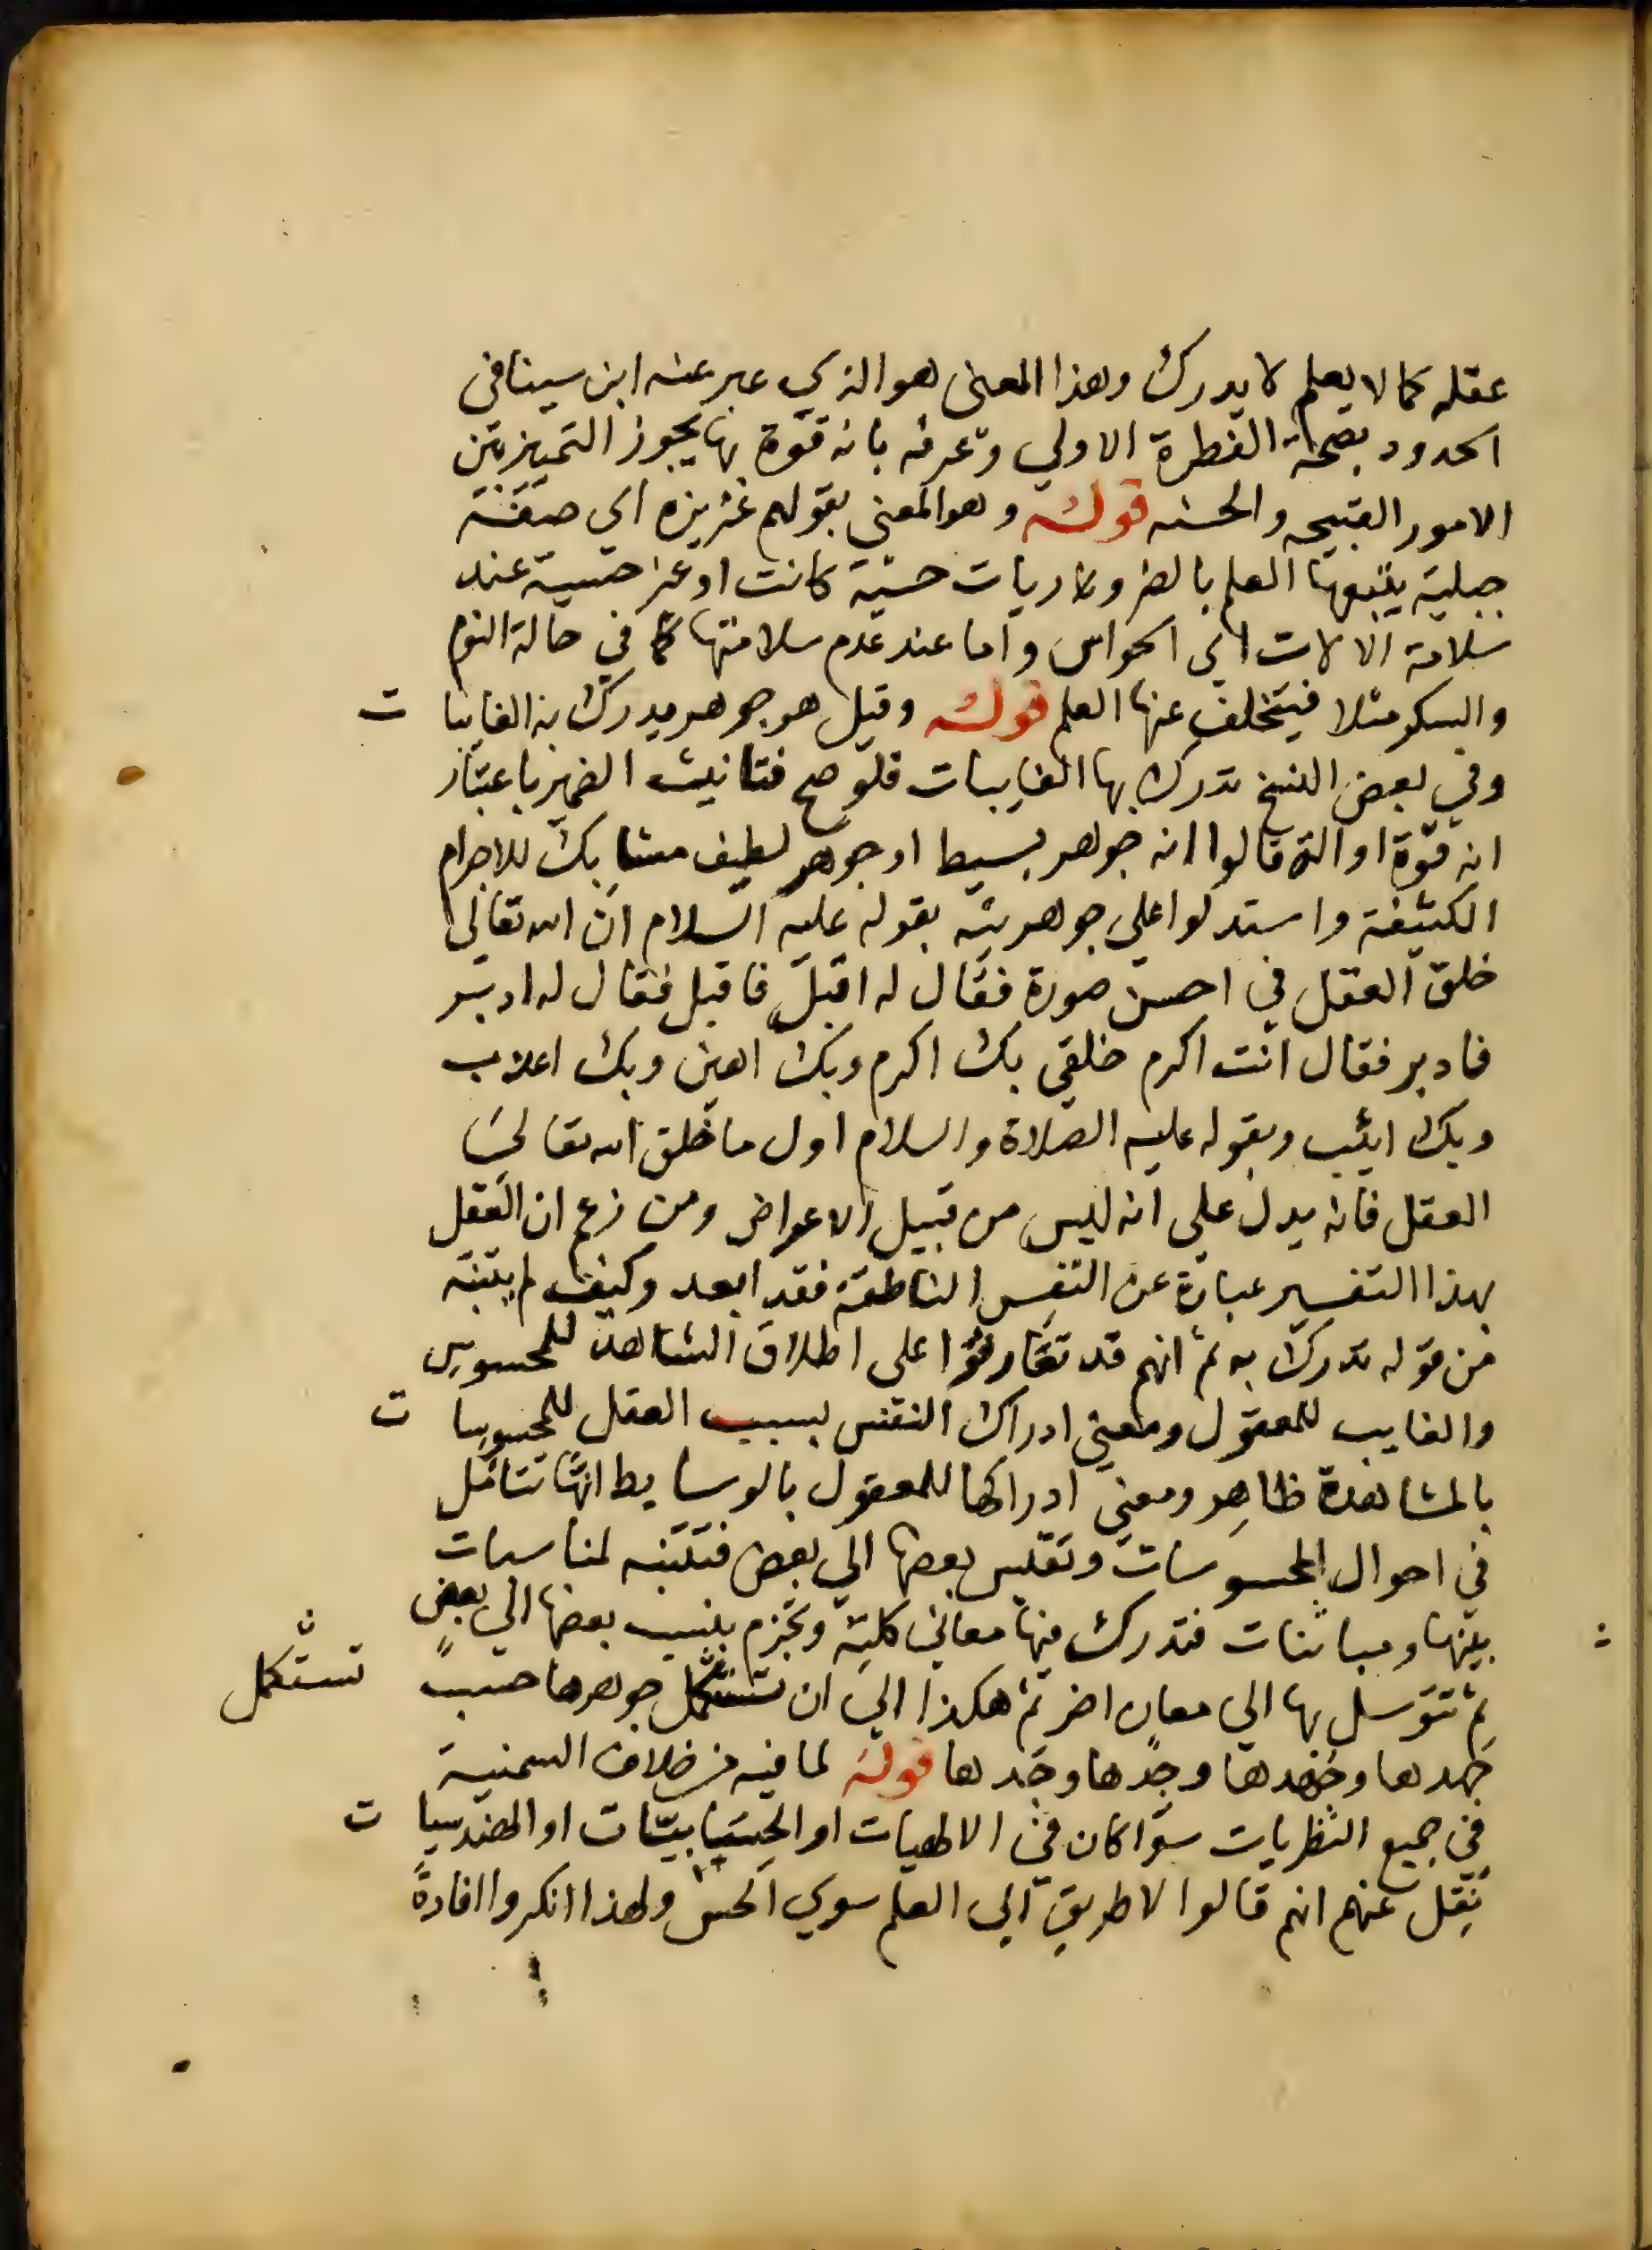 عقله كما لا يعلم لا يدرك وهذا المعنى هو الذي عبر عنه ابن سينا في
الحدود بصحة الفطرة الاولي وعرفه بانه قوة بها يجوز التميز بين
الامور القبيحه والحسنه قوله وهو المعني بقولهم غريزه اي صفة
جبلية يتبعها العلم بالضروريات حسية كانت او غير حسية عند
سلامة الالات اي الحواس واما عند عدم سلامتها كما في حالة النوم
والسكر مثلا فيتخلف عنها العلم قوله وقيل هو جوهر يدرك به الغايبات
وفي بعض النسخ تدرك بها الغايبات فلو صح فتانيث الضمير باعتبار
انه قوة او الة قالوا انه جوهر بسيط او جوهر لطيف مشابك للاجرام
الكثيفة واستدلوا علي جوهريته بقوله عليه السلام ان الله تعالي
خلق العقل في احسن صورة فقال له اقبل فاقبل فقال له ادبر
فادبر فقال انت اكرم خلقي بك اكرم وبك اهين وبك اعذب
وبك اثيب وبقوله عليه الصلاة والسلام اول ما خلق الله تعالي
العقل فانه يدل علي انه ليس من قبيل الاعراض ومن زعم ان العقل
بهذا التفسير عبارة عن النفس الناطقة فقد ابعد وكيف لم يتنبه
من قوله تدرك به ثم انهم قد تعارفوا على اطلاق الشاهد للمحسوس
والغايب للمعقول ومعني ادراك النفس بسبب العقل للمحسوسات
بالمشاهدة ظاهر ومعني ادراكها للمعقول بالوسايط انها تتامل
في احوال المحسوسات وتقيس بعضها الي بعض فتتنبه لمناسبات
بينها ومباينات فتدرك منها معاني كلية وتجزم بنسب بعضها الي بعض
ثم تتوسل بها الي معان اخر ثم هكذا الي ان تستكمل جوهرها حسب تستكمل
جهدها وجدها قوله لما فيه من خلاف السمنية
في جميع النظريات سوا كان في الالهيات او الحسابيات او الهندسيات
نقل عنهم انهم قالوا لا طريق الي العلم سوي الحس ولهذا انكروا افادة